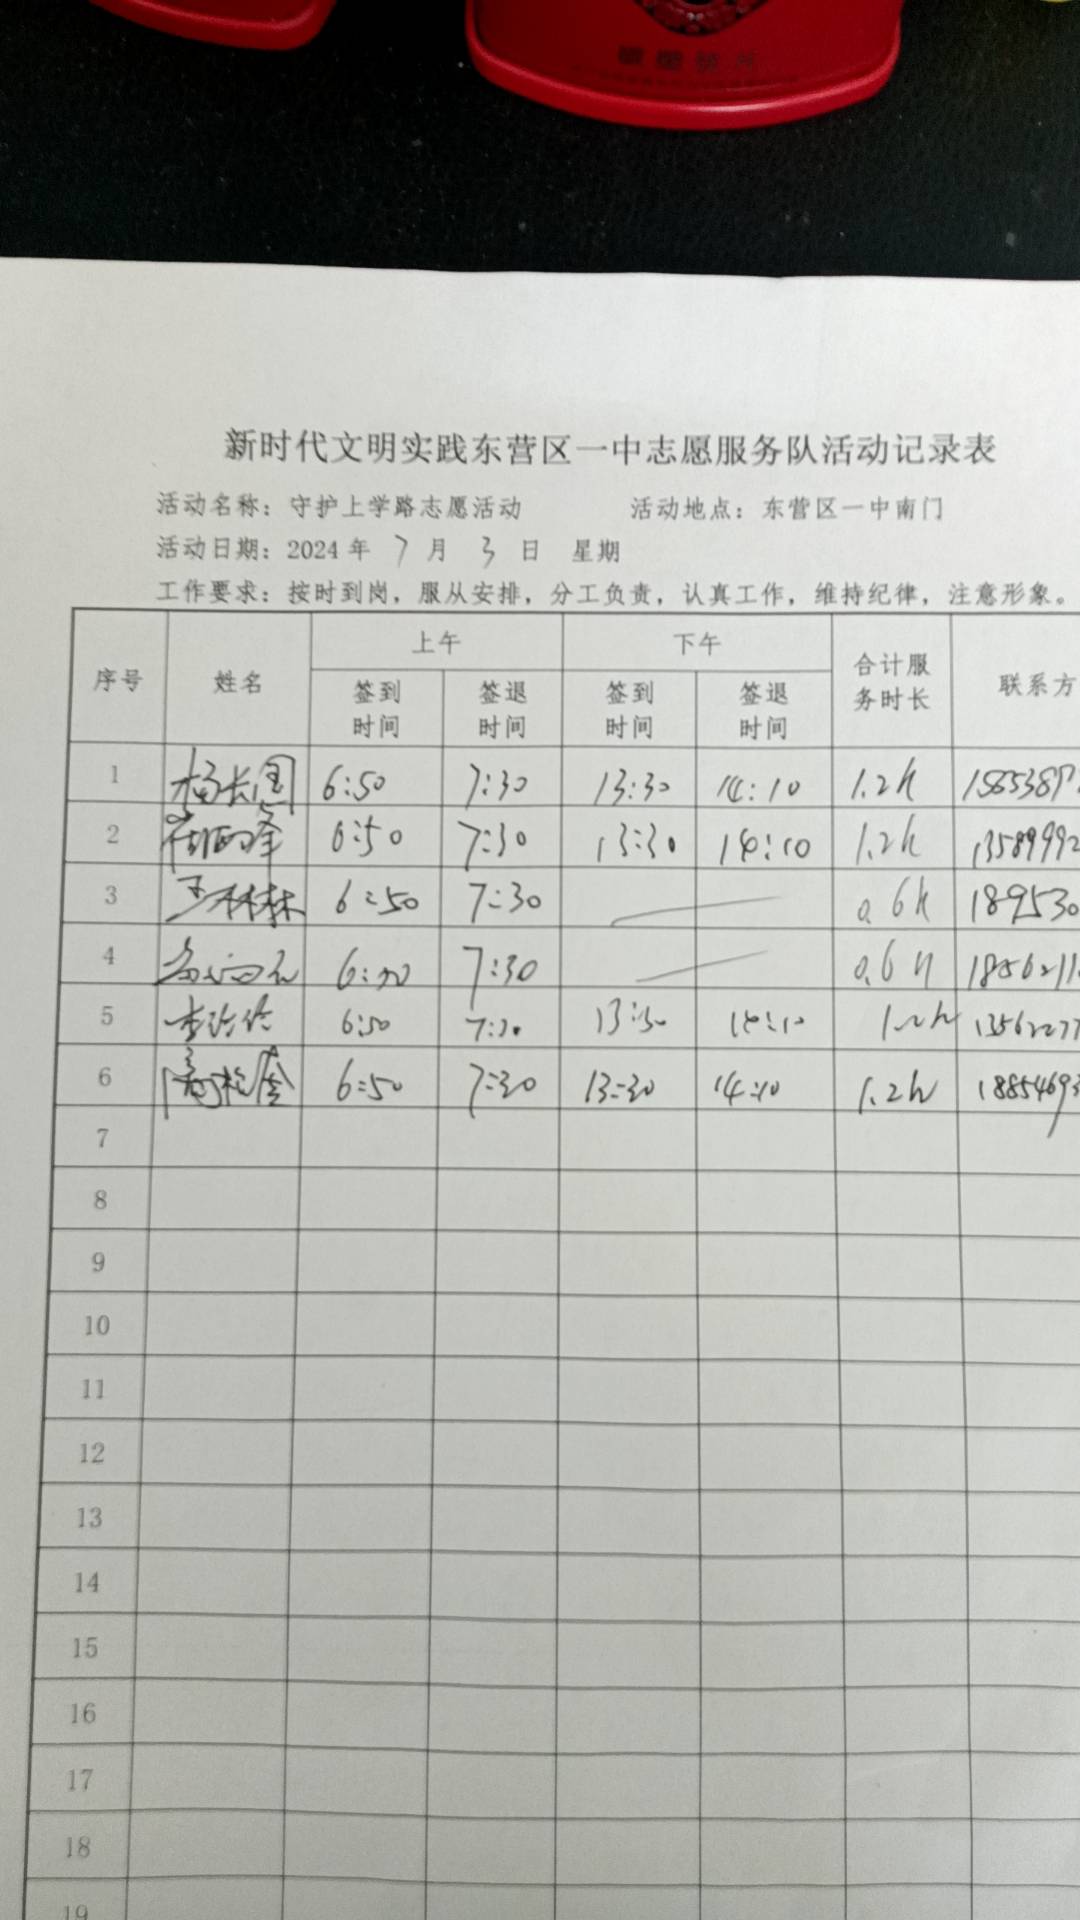 新时代文明实践东营区一中志愿服务队活动记录表
活动名称：守护上学路志愿活动 活动地点：东营区一中南门
活动日期：2024年 7 月 3 日 星期
工作要求：按时到岗，服从安排，分工负责，认真工作，维持纪律，注意形象。
序号 姓名 上午 下午 合计服务时长 联系方
签到时间 签退时间 签到时间 签退时间
1 杨长国 6:50 7:30 13:30 14:10 1.2h
2 6:50 7:30 13:30 14:10 1.2h 13589992
3 王林林 6:50 7:30 0.6h 189530
4 7:30 0.6h
5 6:50 7:30 13:30 14:10 1.2h
6 6:50 7:30 13:30 14:10 1.2h 18854693
7
8
9
10
11
12
13
14
15
16
17
18
19